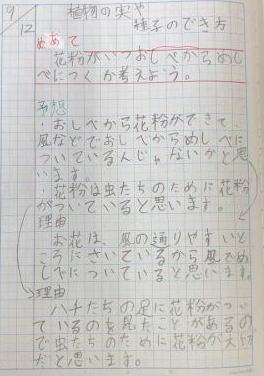 9/12
植物の実や
種子のでき方
めあて
花粉がいつおしべからめし
べにつくか考えよう。
予想
・おしべから花粉ができて、
風などでおしべからめしべに
ついているんじゃないかと思
います。
・花粉は虫たちのために花粉
がついていると思います。
理由
お花は、風の通りやすいと
ころにさいているから風でめ
しべについていると思います。
理由
ハチたちの足に花粉がつい
ているのを見たことがあるの
で虫たちのために花粉が大切
だと思います。